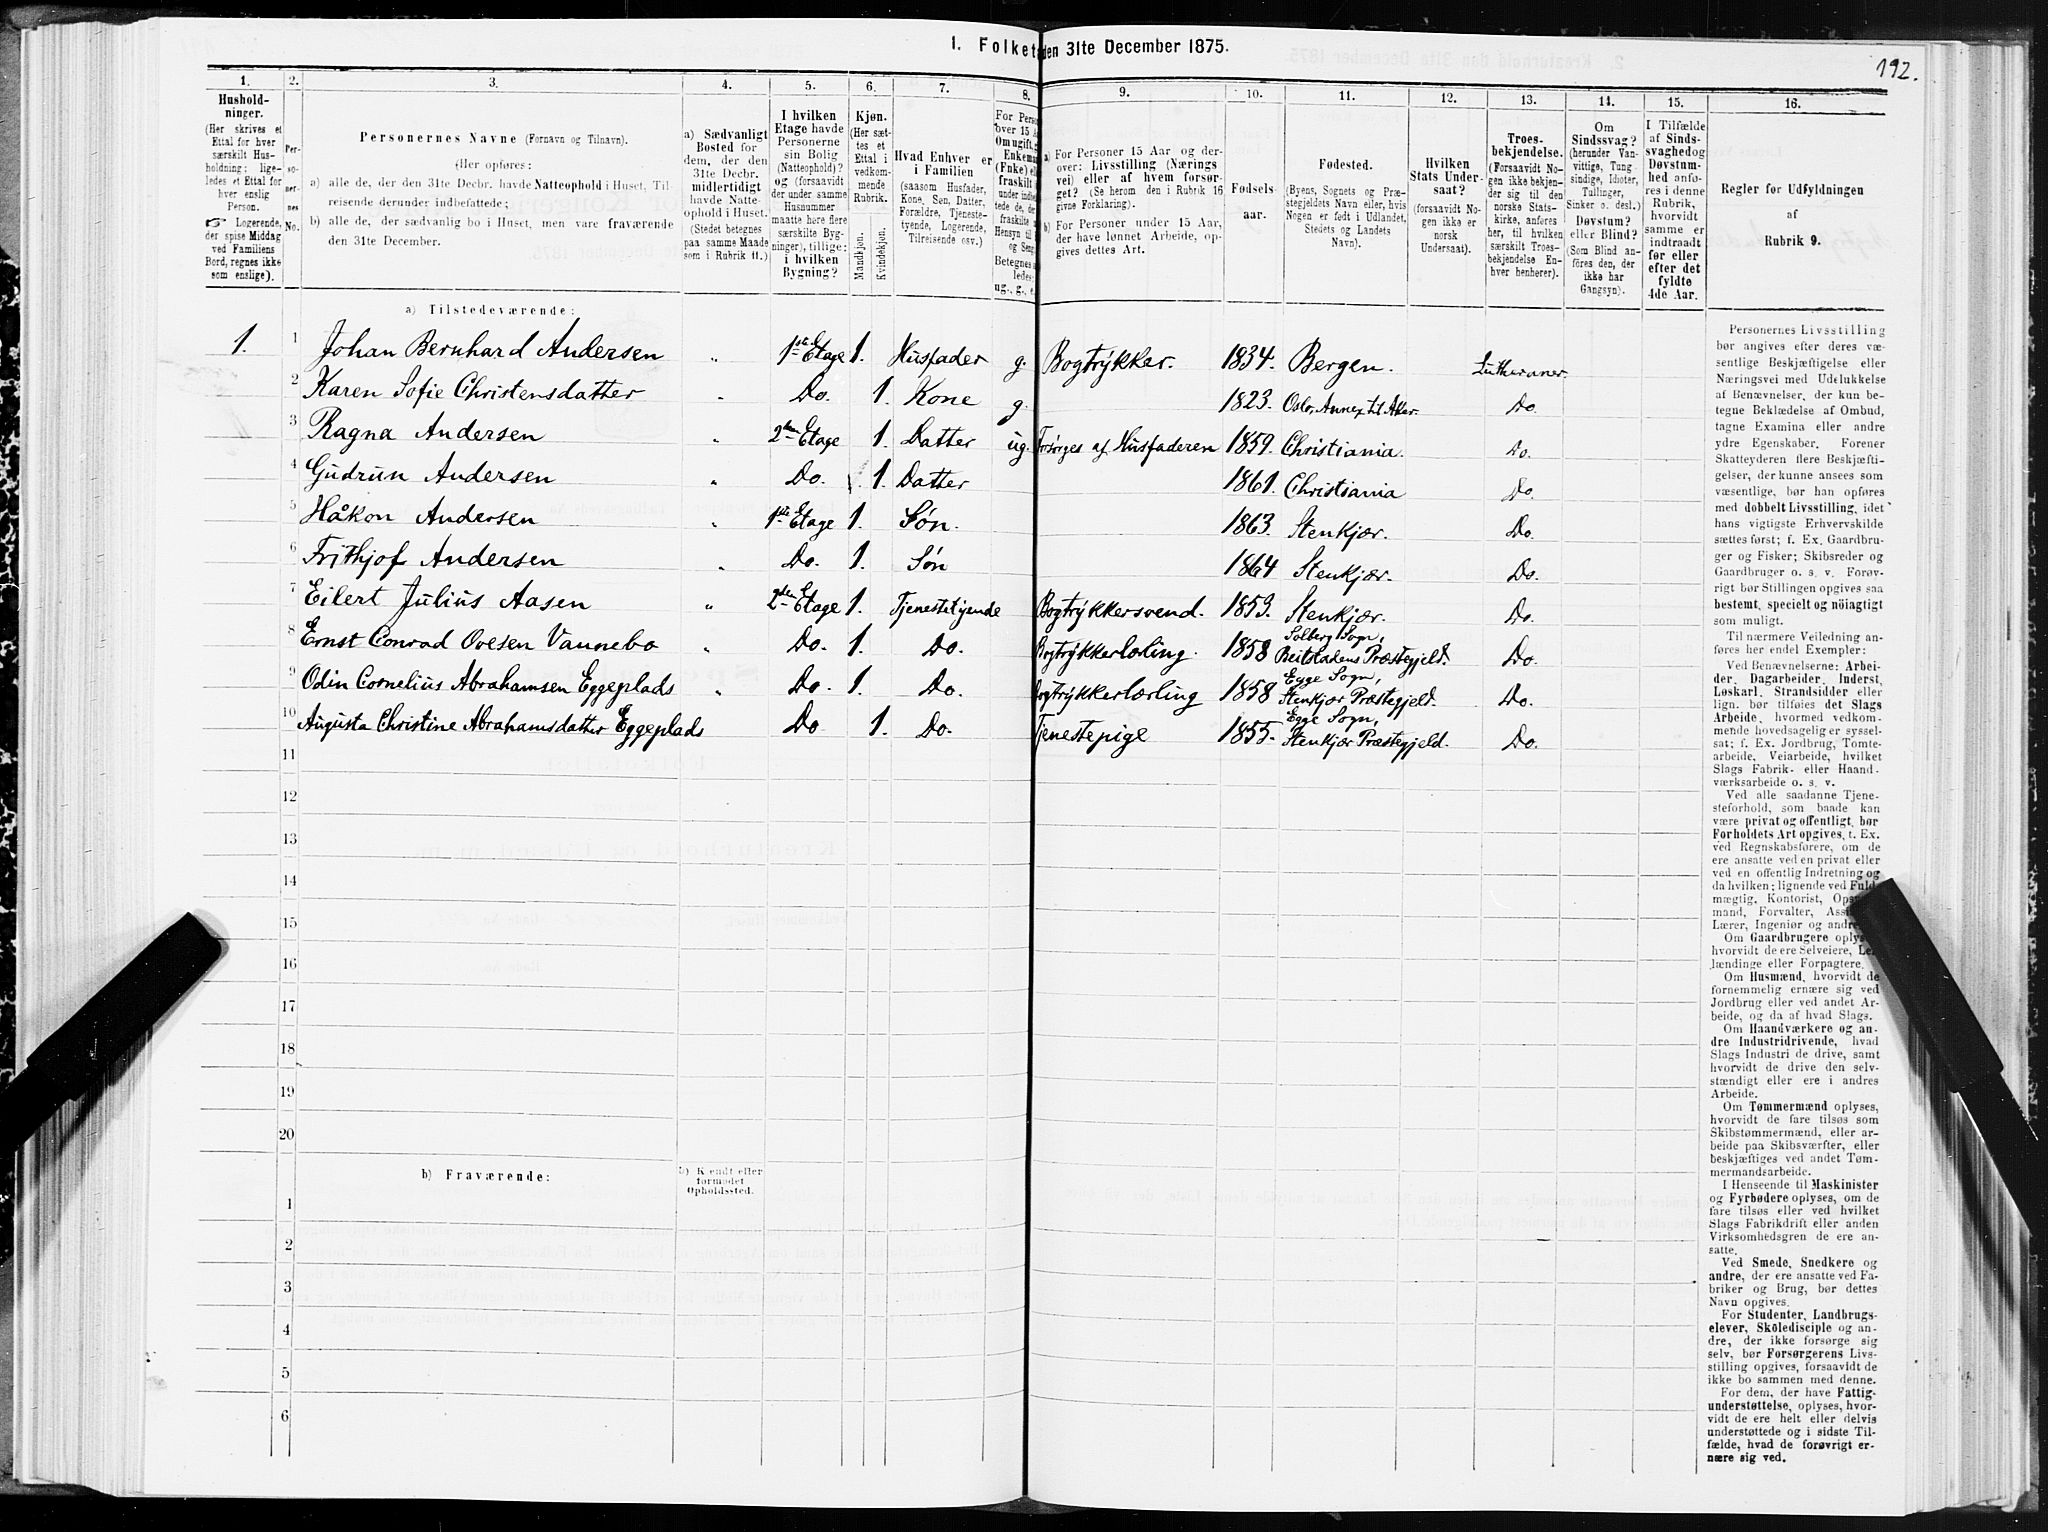 1. Folket den 31te December 1875.
192.
1. 2. 3. 4. 5. 6. 7. 8. 9. 10. 11. 12. 13. 14. 15. 16.
Hushold-
ninger.
(Her skrives et
Ettal for hver
særskilt Hus-
holdning; lige-
ledes et Ettal for
hver enslig
Person.
☞ Logerende,
der spise Middag
ved Familiens
Bord, regnes ikke
som enslige).
Per-
so-
ner-
nes
No.
Personernes Navne (Fornavn og Tilnavn).
(Her opføres:
a) alle de, der den 31te Decbr. havde Natteophold i Huset, Til-
reisende derunder indbefattede;
b) alle de, der sædvanlig bo i Huset, men vare fraværende
den 31te December.
a) Sædvanligt
Bosted for
dem, der den
31te Decbr.
midlertidigt
havde Natte-
ophold i Huset.
(Stedet betegnes
paa samme Maade
som i Rubrik 11.)
I hvilken
Etage havde
Personerne
sin Bolig
(Natteophold)?
og (forsaavidt
der under samme
Husnummer
maatte høre flere
særskilte Byg-
ninger), tillige:
i hvilken
Bygning?
Kjøn.
(Her sæt-
tes et
Ettal i
vedkom-
mende
Rubrik.
Mandkjøn.
Kvindekjøn.
Hvad Enhver er
i Familien
(saasom Husfader,
Kone, Søn, Datter,
Forældre, Tjeneste-
tyende, Logerende,
Tilreisende osv.)
For Pers
over 15 A
Om ugift, g
Enkema
(Fnke) el
fraskilt
under indbe
tede de, de
fraskilte
Hensyn til
og Seng
Betegnes
ledes:
ug., g., e.
a) For Personer 15 Aar og der-
over: Livsstilling (Nærings
vei) eller af hvem forsør-
get? (Se herom den i Rubrik 16
givne Forklaring).
b) For Personer under 15 Aar,
der have lønnet Arbeide, op-
gives dettes Art.
Fødsels-
aar.
Fødested.
(Byens, Sognets og Præ-
stegjeldets Navn eller, hvis
Nogen er født i Udlandet,
Stedets og Landets
Navn).
Hvilken
Stats Under-
saat?
(forsaavidt No-
gen ikke er
norsk
Undersaat).
Troes-
bekjendelse.
(Forsaavidt No-
gen ikke bekjen-
der sig til den
norske Stats-
kirke, anføres
her, til hvilken
særskilt Troes-
bekjendelse En-
hver henhører).
Om
Sindssvag?
(herunder Van-
vittige, Tung
sindige, Idioter,
Tullinger,
Sinker o. desl.)
Døvstum?
eller Blind?
(Som Blind an-
føres den, der
ikke har
Gangsyn).
I Tilfælde
af Sinds-
svaghed og
Døvstum-
hed anfø-
res i denne
Rubrik,
hvorvidt
samme er
indtraadt
før eller
efter det
fyldte
4de Aar.
Regler for Udfyldningen
af
Rubrik 9.
a) Tilstedeværende:
1. 1 Johan Bernhard Andersen „ 1ste Etage 1. Husfader g. Bogtrykker. 1834. Bergen. Lutheraner.
2 Karen Sofie Christensdatter „ Do. 1. Kone g. 1823. Oslo, Annex til Aker. Do.
3 Ragna Andersen „ 2den Etage 1. Datter ug. Forsørges af Husfaderen 1859. Christiania. Do.
4 Gudrun Andersen „ Do. 1. Datter 1861. Christiania Do.
5 Håkon Andersen „ 1ste Etage 1. Søn. 1863. Stenkjær. Do.
6 Frithjof Andersen „ Do. 1. Søn 1864 Stenkjær. Do.
7 Eilert Julius Aasen „ 2den Etage 1. Tjenestetyende Bogtrykkersvend. 1853. Stenkjær. Do.
8 Ernst Conrad Ovesen Vannebo „ Do. 1. Do. Bogtrykkerlæling. 1858 Solberg Sogn, Beitstadens Præstegjeld. Do.
9 Odin Cornelius Abrahamsen Eggeplads „ Do. 1. Do. Bogtrykkerlærling 1858 Egge Sogn, Stenkjær Præstegjeld. Do.
10 Augusta Christine Abrahamsdatter Eggeplads Do 1. Do. Tjenestepige 1855. Egge Sogn, Stenkjær Præstegjeld. Do.
11
12
13
14
15
16
17
18
19
20
b) Fraværende:
b) Kjendt eller
formodet
Opholdssted.
1
2
3
4
5
6
Personernes Livsstilling
bør angives efter deres væ-
sentlige Beskjæftigelse eller
Næringsvei med Udelukkelse
af Benævnelser, der kun be-
tegne Beklædelse af Ombud,
tagne Examina eller andre
ydre Egenskaber. Forener
Skatteyderen flere Beskjæfti-
gelser, der kunne ansees som
væsentlige, bør han opføres
med dobbelt Livsstilling, idet
hans vigtigste Erhvervskilde
sættes først; f. Ex. Gaardbru-
ger og Fisker; Skibsreder og
Gaardbruger o. s. v. Forøv-
rigt bør Stillingen opgives saa
bestemt, specielt og nöiagtigt
som muligt.
Til nærmere Veiledning an-
føres her endel Exempler:
Ved Benævnelserne: Arbei-
der, Dagarbeider, Inderst,
Løskarl, Strandsidder eller
lign. bør tilføies det Slags
Arbeide, hvormed vedkom-
mende hovedsagelig er syssel-
sat; f. Ex. Jordbrug, Tomte-
arbeide, Veiarbeide, hvilket
Slags Fabrik- eller Haand-
værksarbeide o. s. v.
Ved alle saadanne Tjene-
steforhold, som baade kan
være privat og offentligt, bør
Forholdets Art opgives, t. Ex.
ved Regnskabsførere, om de
ere ansatte ved en privat eller
ved en offentlig Indretning og
da hvilken; lignende ved Fuld-
mægtig, Kontorist, Opsyns-
mand, Forvalter, Assi
Lærer, Ingeniør og andre
Om Gaardbrugere oplys
hvorvidt de ere Selveiere, Lei-
lændinge eller Forpagtere.
Om Husmænd, hvorvidt de
fornemmelig ernære sig ved
Jordbrug eller ved andet Ar-
beide, og da af hvad Slags.
Om Haandværkere og an-
dre Industridrivende, hvad
Slags Industri de drive, samt
hvorvidt de drive den selv-
stændigt eller ere i andres
Arbeide.
Om Tømmermænd oplyses,
hvorvidt de fare tilsøs som
Skibstømmermænd, eller ar-
beide paa Skibsværfter, eller
beskjæftiges ved andet Tøm-
mermandsarbeide.
I Henseende til Maskinister
og Fyrbødere oplyses, om de
fare tilsøs eller ved hvilket
Slags Fabrikdrift eller anden
Virksomhedsgren de ere an-
satte.
Ved Smede, Snedkere og
andre, der ere ansatte ved Fa-
briker og Brug, bør dettes
Navn opgives.
For Studenter, Landbrugs-
elever, Skoledisciple og an-
dre, der ikke forsørge sig
selv, bør Forsørgerens Livs-
stilling opgives, forsaavidt de
ikke bo sammen med denne.
For dem, der have Fattig-
understøttelse, oplyses, hvor-
vidt de ere helt eller delvis
understøttede og i sidste Til-
fælde, hvad de forøvrigt er-
nære sig ved.